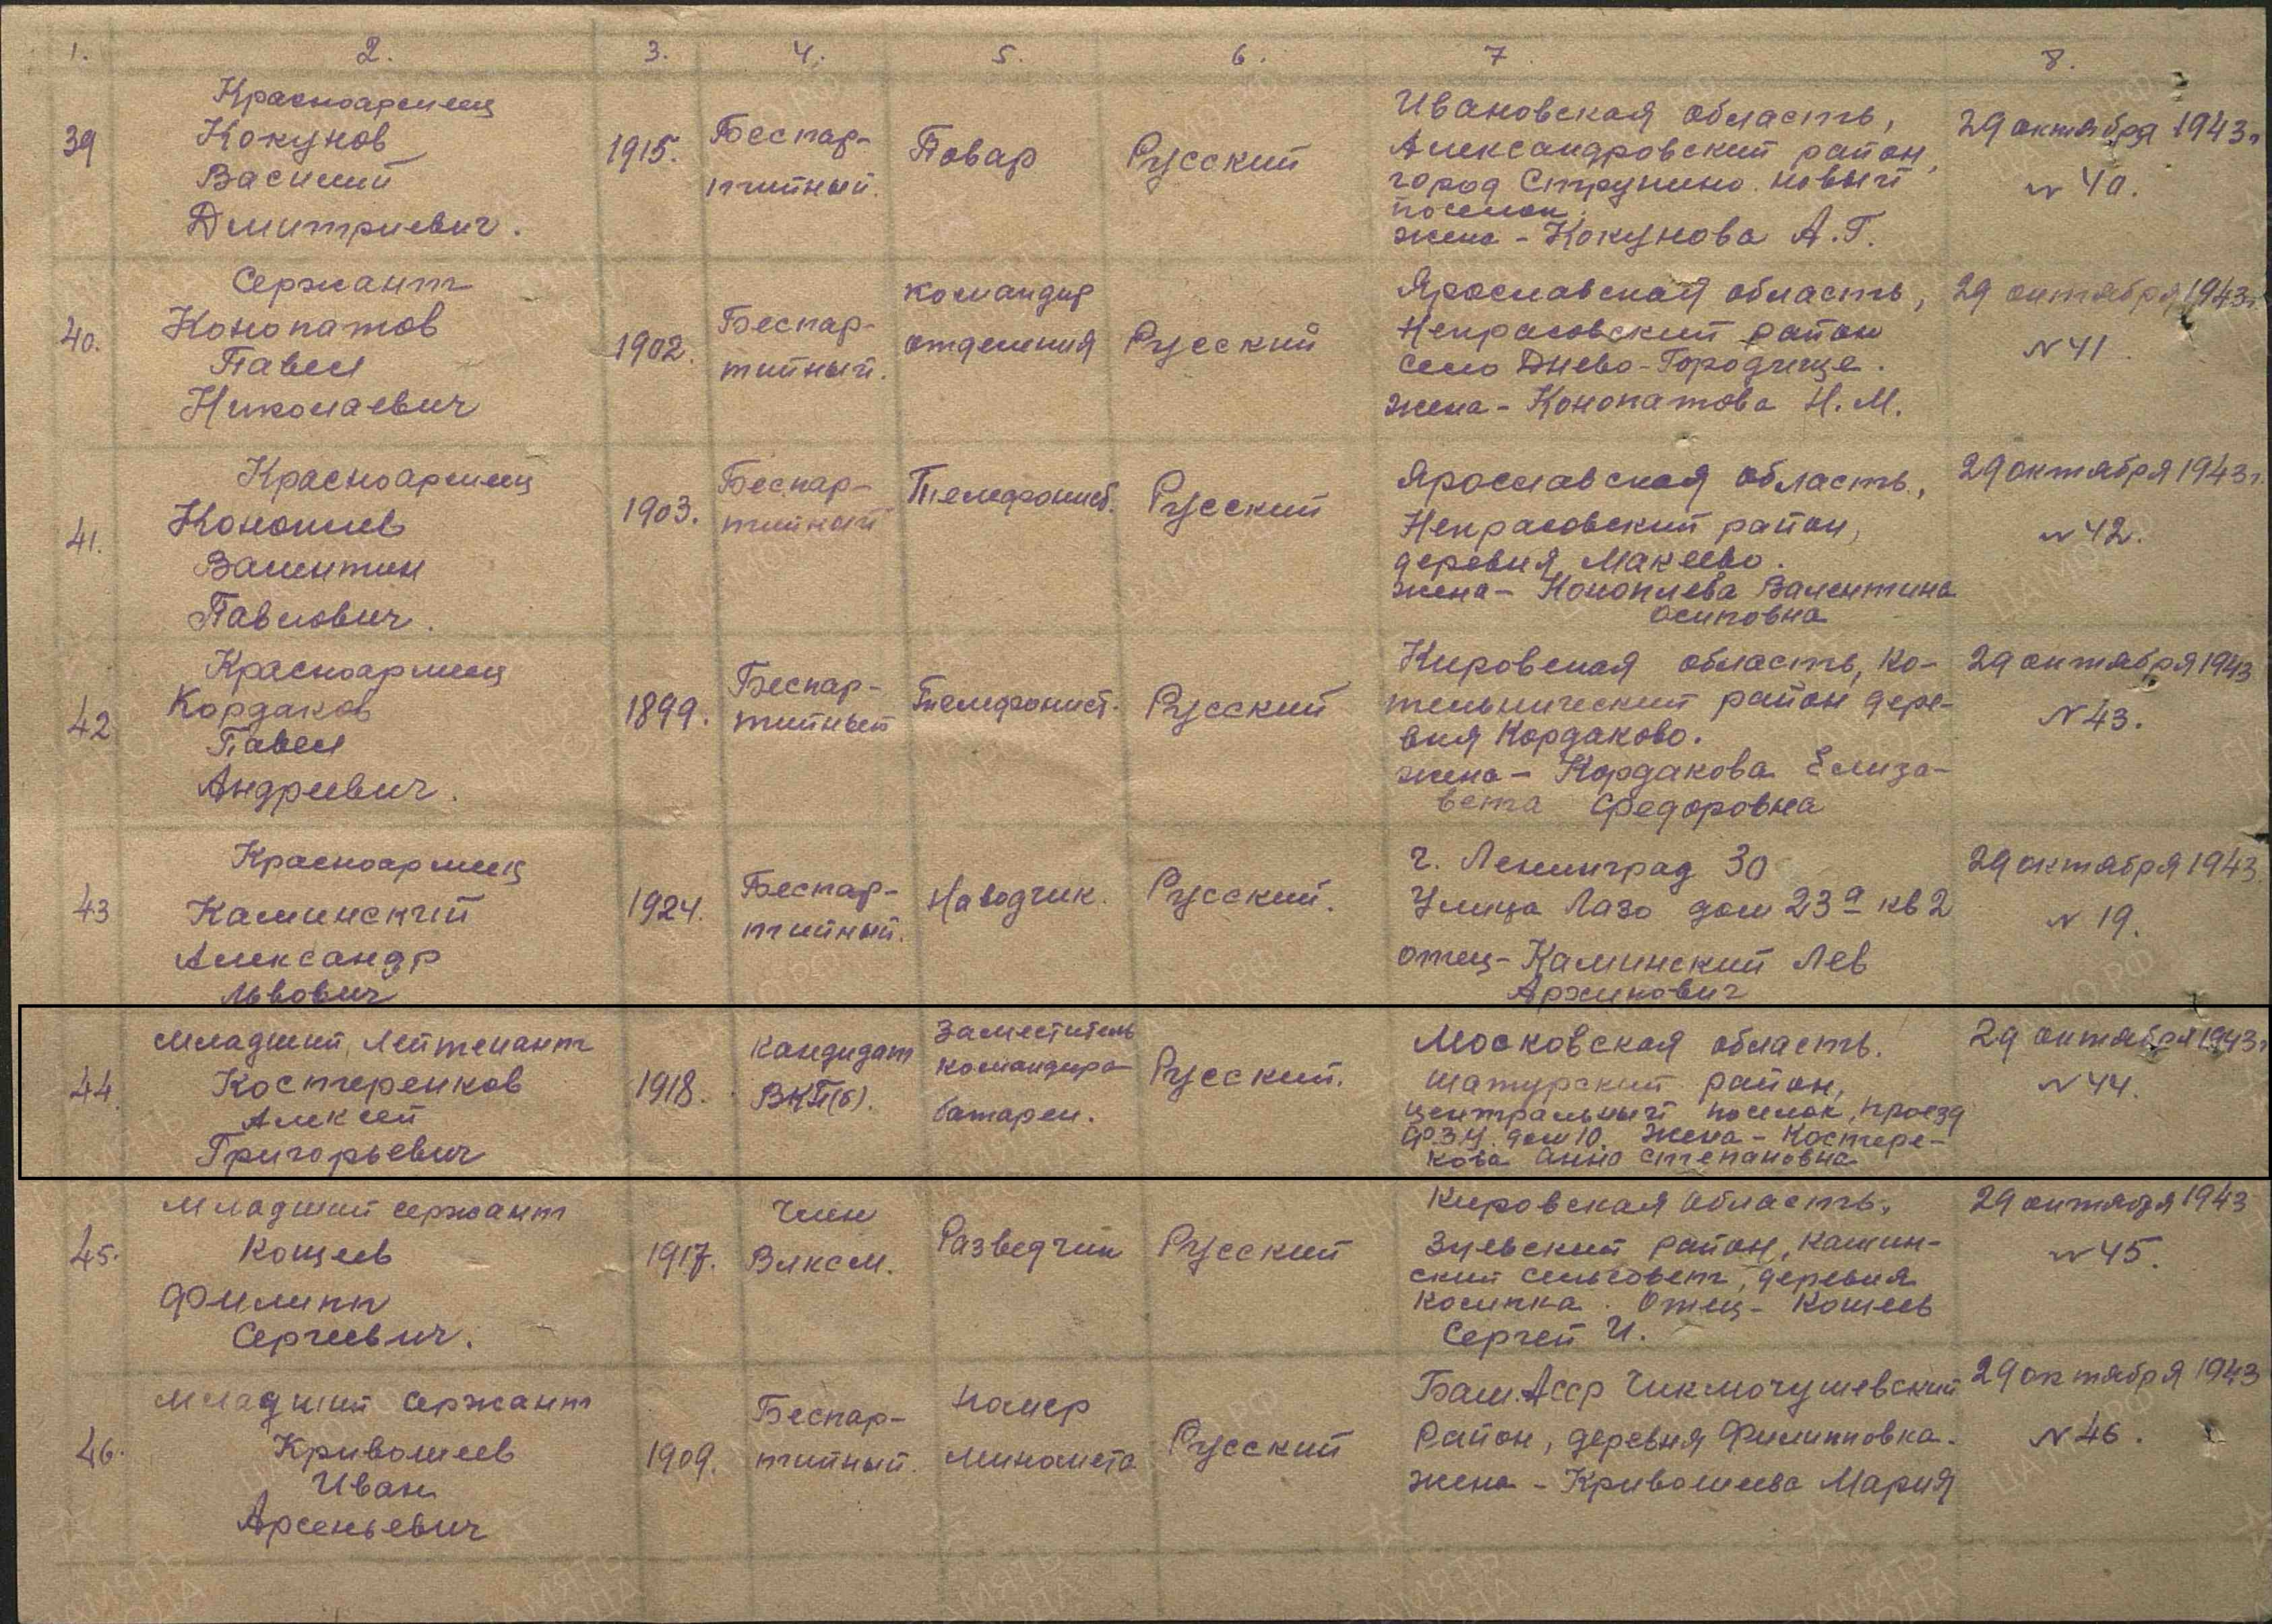 1. 2. 3. 4. 5. 6. 7 8.
39
Красноармеец
Кокунов
Василий
Дмитриевич.
1915.
Беспар-
тийный.
Повар
Русский
Ивановская область,
Александровский район,
город Струнино. новый
поселок.
жена - Кокунова А.Г.
29 октября 1943г
N 40.
40.
Сержант
Конопатов
Павел
Николаевич
1902.
Беспар-
тийный.
командир
отделения
Русский
Ярославская область,
Некрасовский район
село Днево-Городище.
жена - Конопатова Н.М.
29 октября 1943г.
N 41
41.
Красноармеец
Валентин
Павлович.
1903.
Беспар-
тийный
Телефонист.
Русский
Ярославская область,
Некрасовский район,
деревня Макеево.
жена - Коноплева Валентина
Осиповна
29 октября 1943г.
N 42.
42
Красноармеец
Кордаков
Павел
Андреевич.
1899.
Беспар-
тийный
Телефонист.
Русский
Кировская область, Ко-
тельнический район дере-
вня Кордаково.
жена - Кордакова Елиза-
вета Федоровна
29 октября 1943
N 43.
43
Красноармеец
Каминский
Александр
Львович
1924.
Беспар-
тийный.
Наводчик.
Русский.
г. Ленинград 30
Улица Лазо дом 23а кв 2
отец - Каминский Лев
29 октября 1943.
N 19.
44.
Младший Лейтенант
Костеренков
Алексей
Григорьевич
1918.
Кандидат
ВКП(б).
Заместитель
командира
батареи.
Русский.
Московская область.
Шатурский район,
центральный поселок, проезд
ФЗУ. дом 10. жена - Костере-
кова Анна Степановна
29 октября 1943г
N 44.
45.
Младший сержант
Кощеев
Филипп
Сергеевич.
1917.
Член
Влксм.
Разведчик
Русский
Кировская область.
Зуевский район,
ский сельсовет, деревня
Косипка. Отец - Кощеев
Сергей И.
29 октября 1943
N 45.
46.
Младший Сержант
Кривошеев
Иван
Арсеньевич
1909.
Беспар-
тийный.
номер
миномета
Русский
Баш.Асср
Район, деревня Филипповка.
жена - Кривошеева Мария
29 октября 1943
N 46.